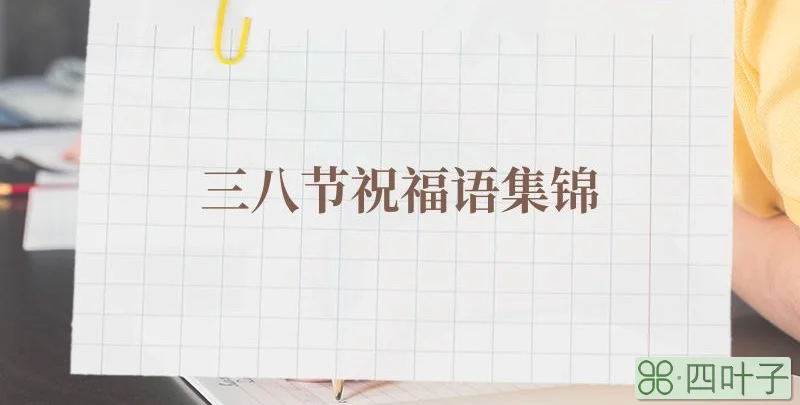 三八节祝福语集锦
⌘·四叶子